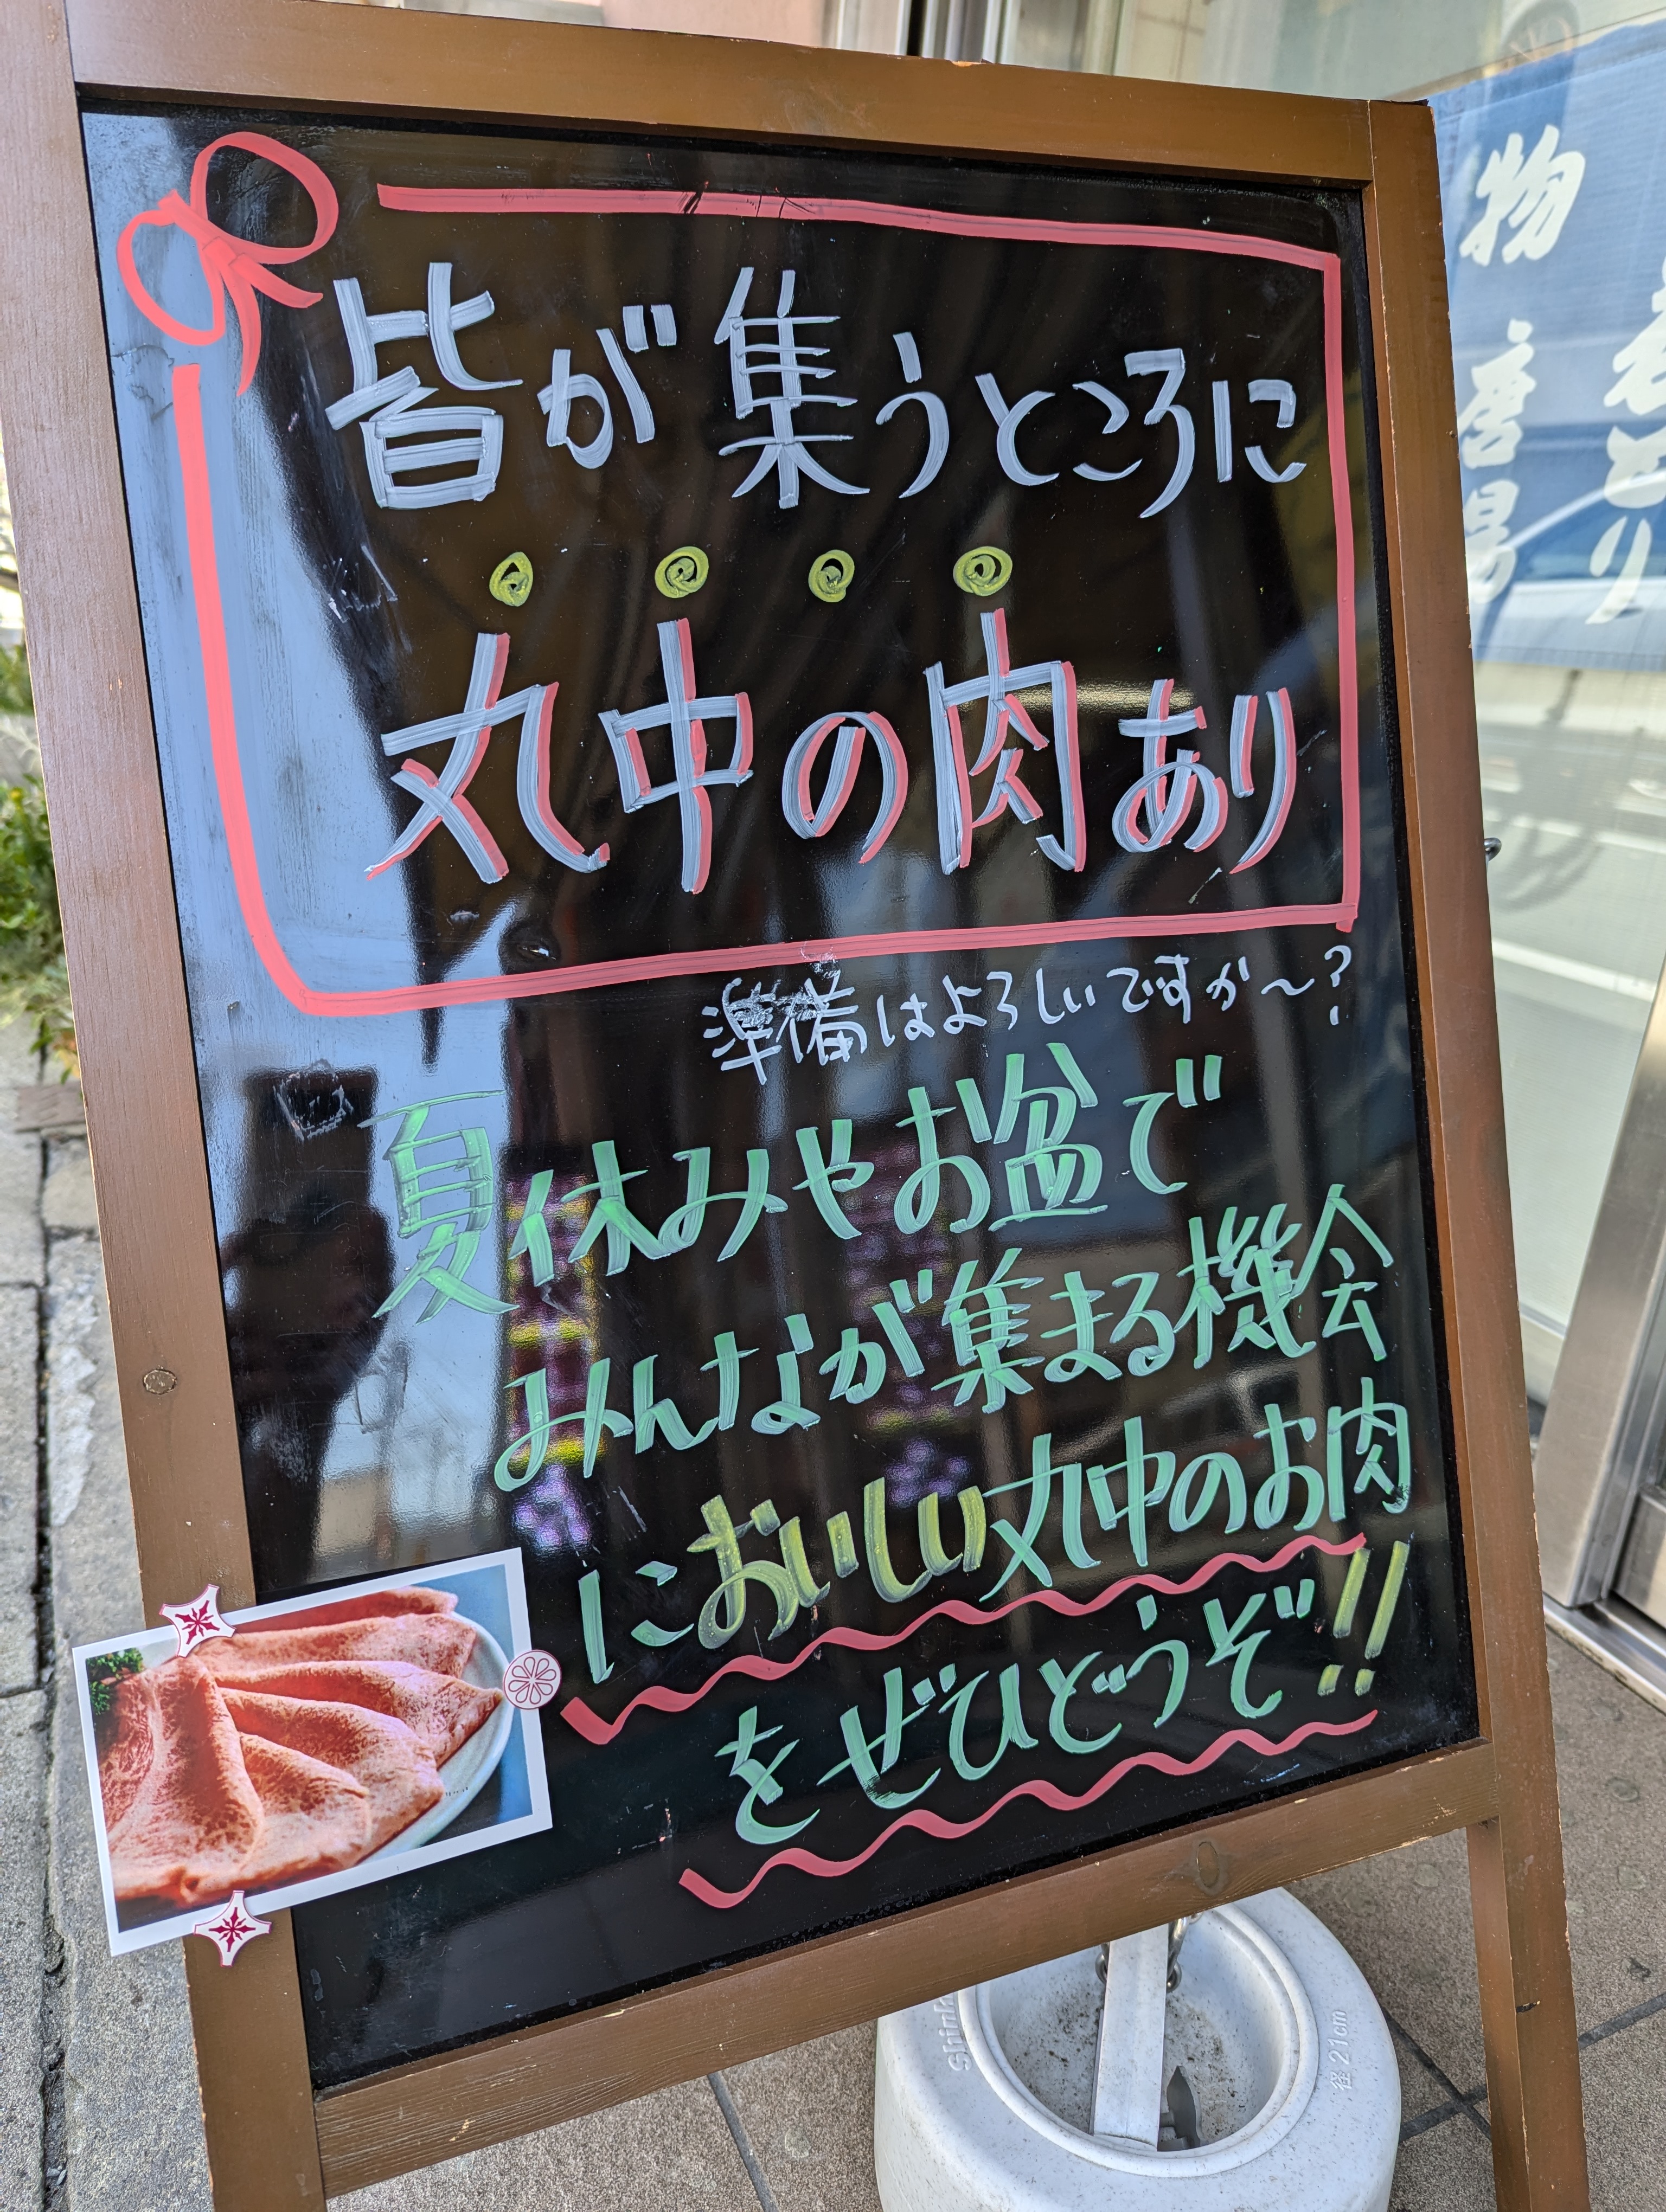 皆が集うところに
丸中の肉あり
準備はよろしいですか～?
夏休みやお盆で
みんなが集まる機会
においしい丸中のお肉
をぜひどうぞ!!
物
径21cm